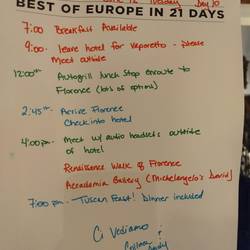 Tuesday Day 10
BEST OF EUROPE IN 21 DAYS
7:00 Breakfast Available
9:00 Leave hotel for Vaporetto - please
Meet outside
12:00ish Autogrill lunch stop enroute to
Florence (lots of options)
2:45ish Arrive Florence
Check into hotel
4:00pm Meet w/ audio headsets outside
of hotel
Renaissance Walk of Florence
Accademia Gallery (Michelangelo's David)
7:00pm - Tuscan Feast! Dinner included
Ci Vediamo